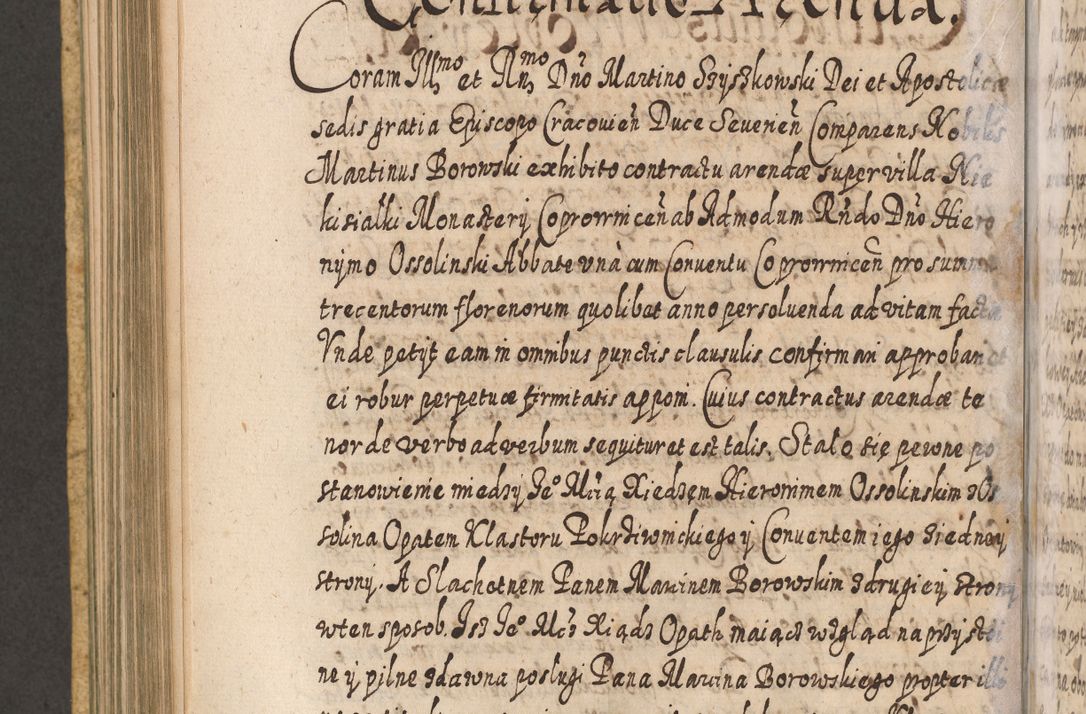 Confirmatio Arendæ.
Coram Illmo et Rndmo Dño Martino Szyszkowski Dei et Apostolicæ
sedis gratia Episcopo Cracovieñ Duce Severieñ Comparens Nobilis
Martinus Borowski exhibito contractu arendæ super villa Nie
kisialki Monasterij Coprowniceñ ab Admodum Rñdo Dño Hiero
nymo Ossolinski Abbate vnà cum Conventu Coprowniceñ pro summa
trecentorum florenorum quolibat anno persoluenda ad vitam factæ
Vnde petijt eam in omnibus punctis clausulis confirmari approbari et
ei robur perpetuæ firmitatis apponi. Cuius contractus arendæ te
nor de verbo ad verbum sequitur et est talis. Stało się pewne po
stanowienie miedzy Je° Mcią Xiedzem Hieronimem Ossolinskim z Os
solina Opatem Klastoru Pokrziwnickiego ÿ Conventem iego z iedney
strony. A Slachetnem Panem Marcinem Borowskim z drugiey strony
w ten sposob. Isz Je° Mcz Xiądz Opath maiącz wzgląd na przyst
ne ÿ pilne zdawna poslugi Pana Marcina Borowskiego propter illi